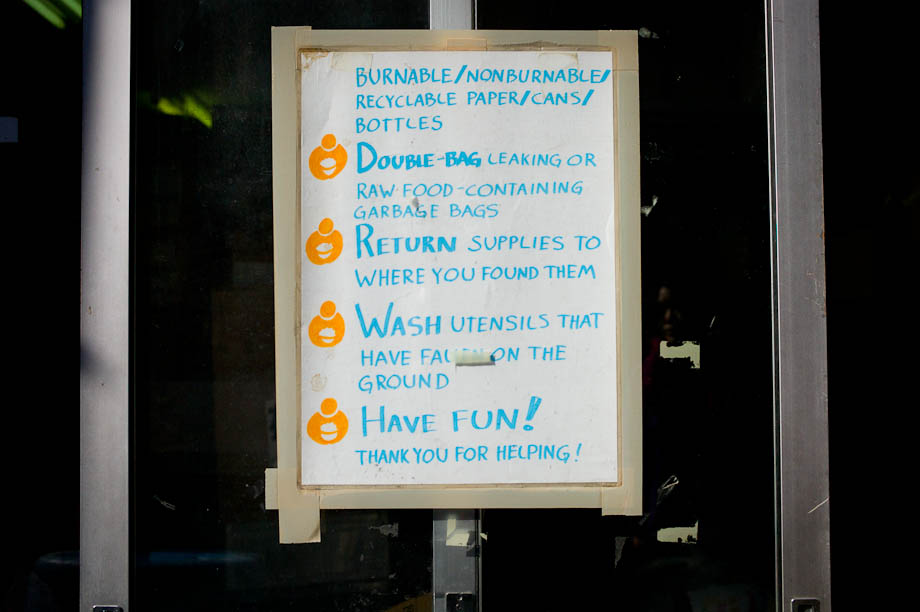 BURNABLE/NONBURNABLE/
RECYCLABLE PAPER/CANS/
BOTTLES
DOUBLE-BAG LEAKING OR
RAW-FOOD-CONTAINING
GARBAGE BAGS
RETURN SUPPLIES TO
WHERE YOU FOUND THEM
WASH UTENSILS THAT
HAVE FALLEN ON THE
GROUND
HAVE FUN!
THANK YOU FOR HELPING!